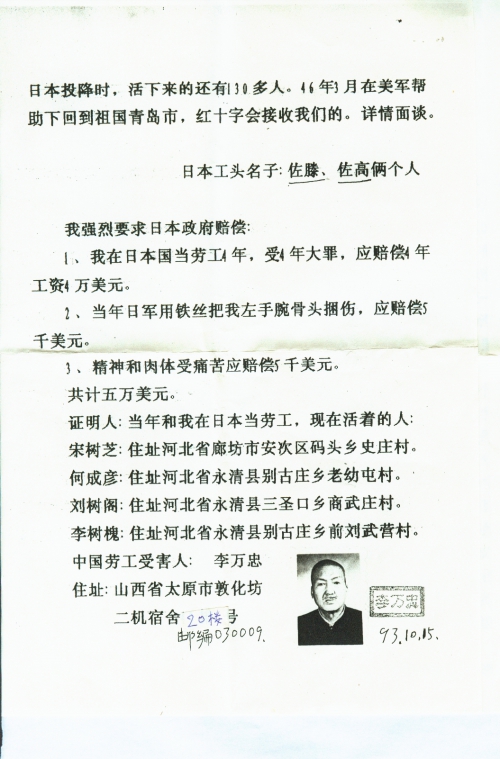 日本投降时，活下来的还有130多人。46年3月在美军帮
助下回到祖国青岛市，红十字会接收我们的。详情面谈。
日本工头名子：佐滕、佐高俩个人
我强烈要求日本政府赔偿：
1、我在日本国当劳工4年，受4年大罪，应赔偿4年
工资4万美元。
2、当年日军用铁丝把我左手腕骨头捆伤，应赔偿5
千美元。
3、精神和肉体受痛苦应赔偿5千美元。
共计五万美元。
证明人：当年和我在日本当劳工，现在活着的人：
宋树芝：住址河北省廊坊市安次区码头乡史庄村。
何成彦：住址河北省永清县别古庄乡老幼屯村。
刘树阁：住址河北省永清县三圣口乡商武庄村。
李树槐：住址河北省永清县别古庄乡前刘武营村。
中国劳工受害人： 李万忠
住址：山西省太原市敦化坊
二机宿舍20楼号
邮编030009.
李万忠
93.10.15.